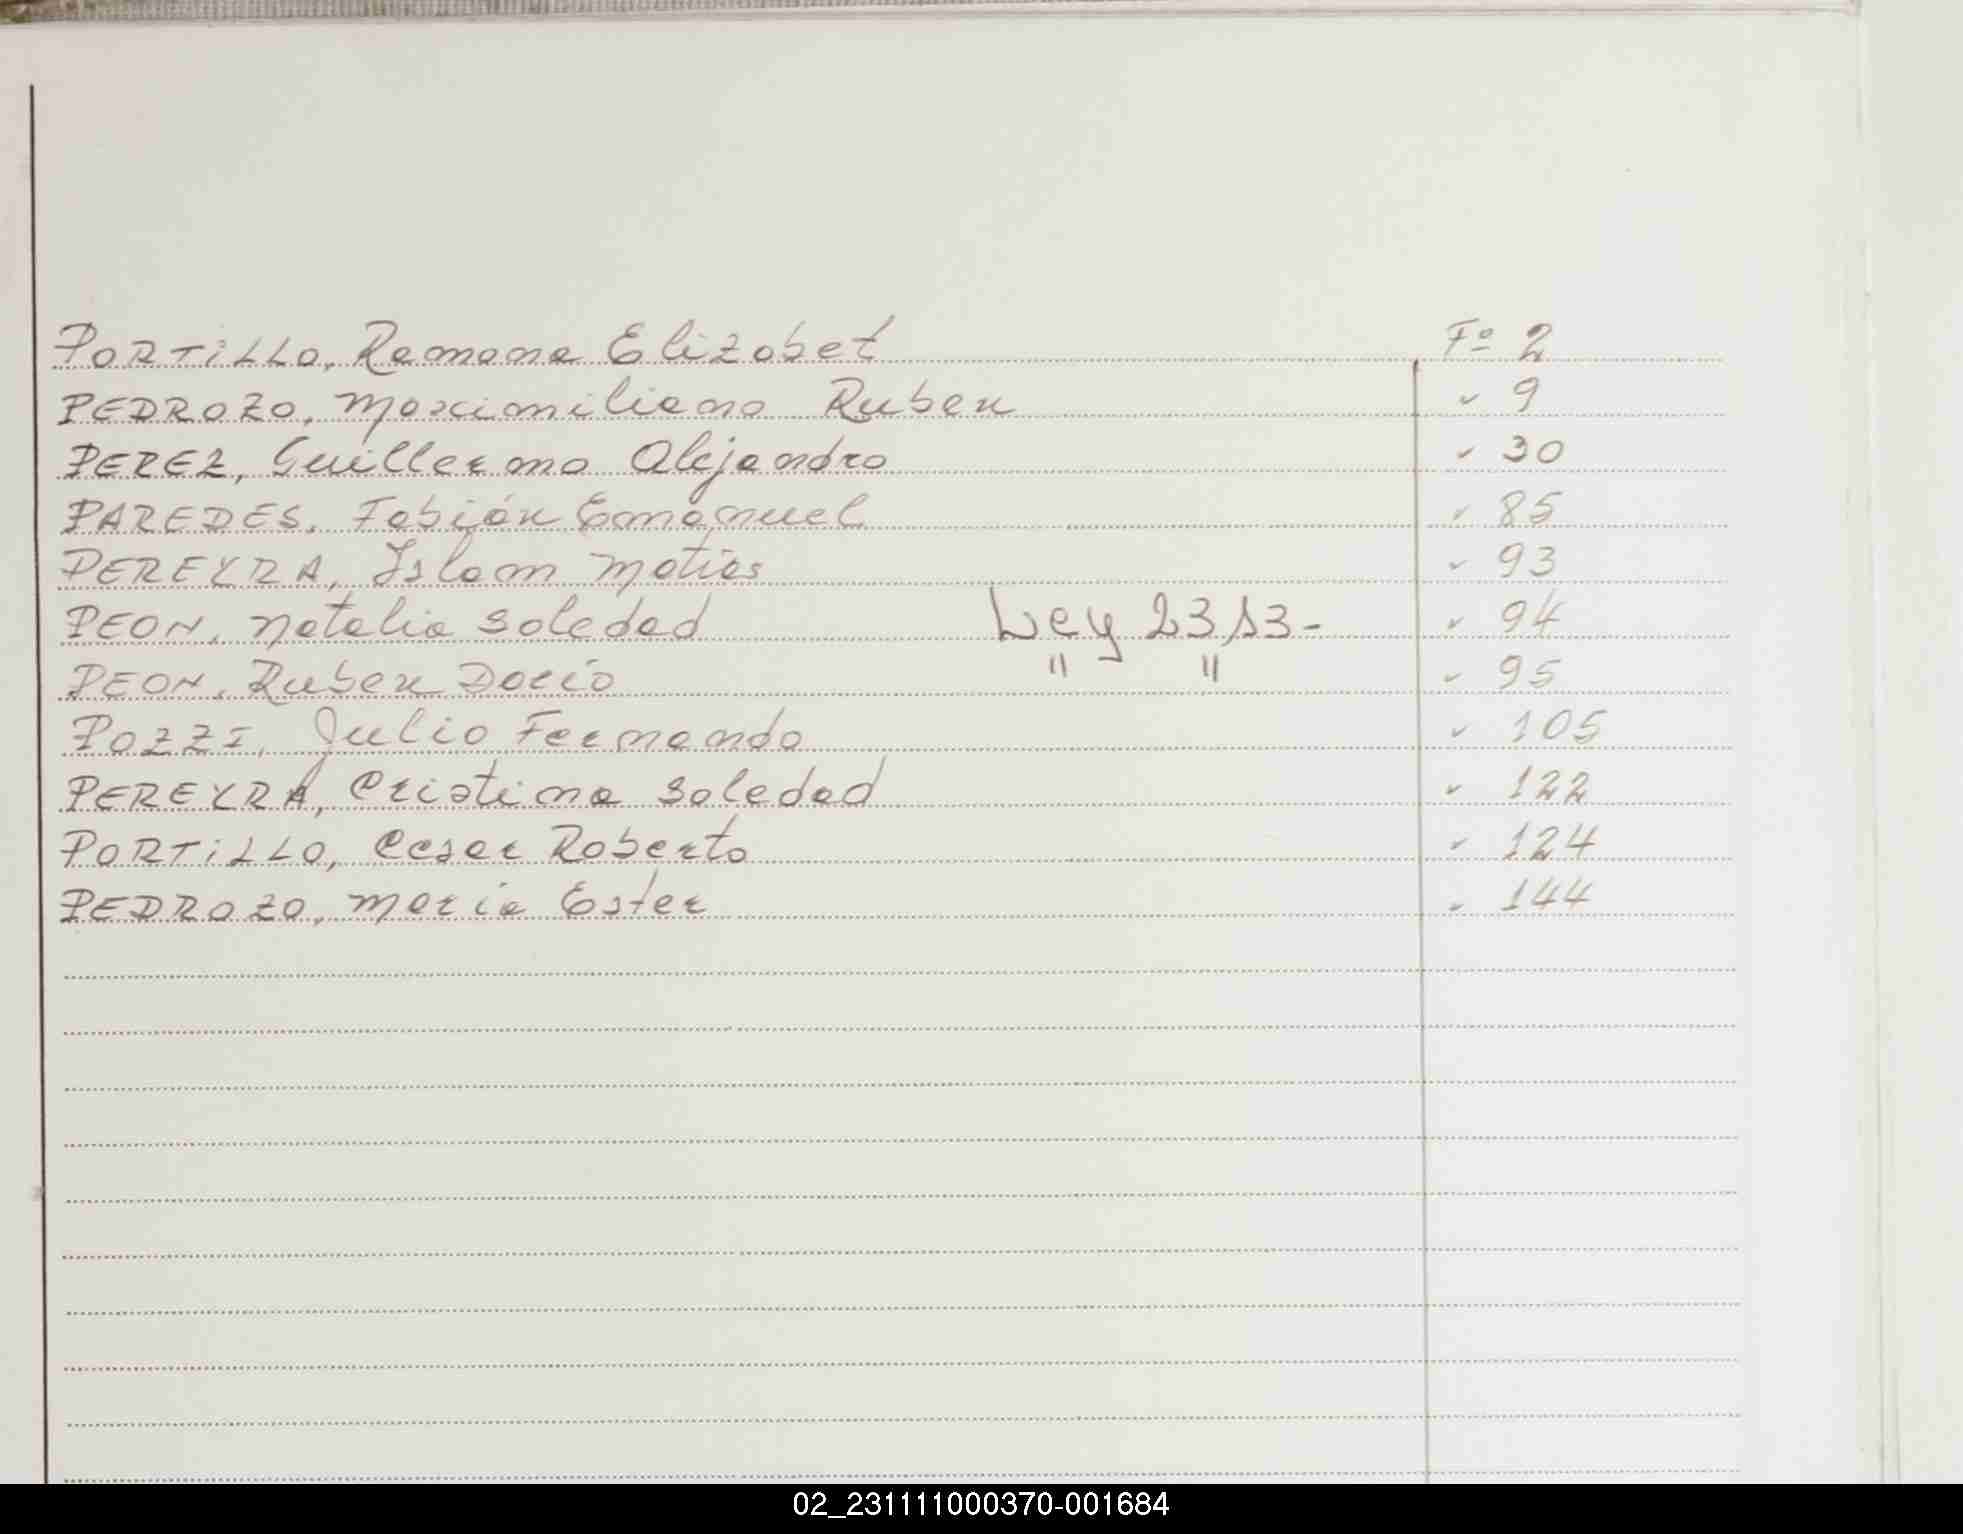 PORTiLLO, Ramona Elizabet Fº 2
PEDROZO, Maximiliano Ruben " 9
PEREZ, Guillermo Alejandro " 30
PAREDES, Fabián Emanuel " 85
PEREYRA, Islam Matias " 93
PEON, Natalia Soledad Ley 2313- " 94
PEON, Ruben Darío " " " 95
POZZI, Julio Fernando " 105
PEREYRA, Cristina Soledad " 122
PORTiLLO, Cesar Roberto " 124
PEDROZO, María Ester " 144
02_231111000370-001684